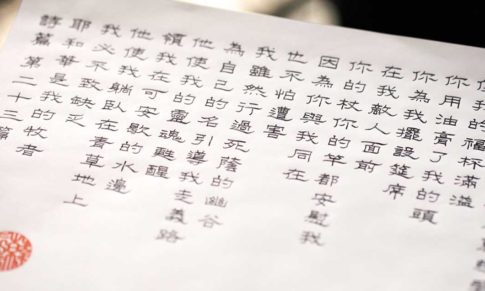 詩篇第二十三篇
耶和華是我的牧者
我必不致缺乏
他使我躺臥在青草地上
領我在可安歇的水邊
他使我的靈魂甦醒
為自己的名引導我走義路
我雖然行過死蔭的幽谷
也不怕遭害
因為你與我同在
你的杖你的竿都安慰我
在我敵人面前
你為我擺設筵席
你用油膏了我的頭
使我的福杯滿溢